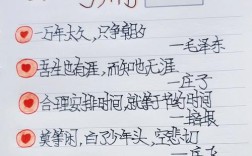 一万年太久，只争朝夕
—毛泽东
吾生也有涯，而知也无涯
—庄子
合理安排时间，就等于节约时间
—培根
莫等闲，白了少年头，空悲切
—岳飞